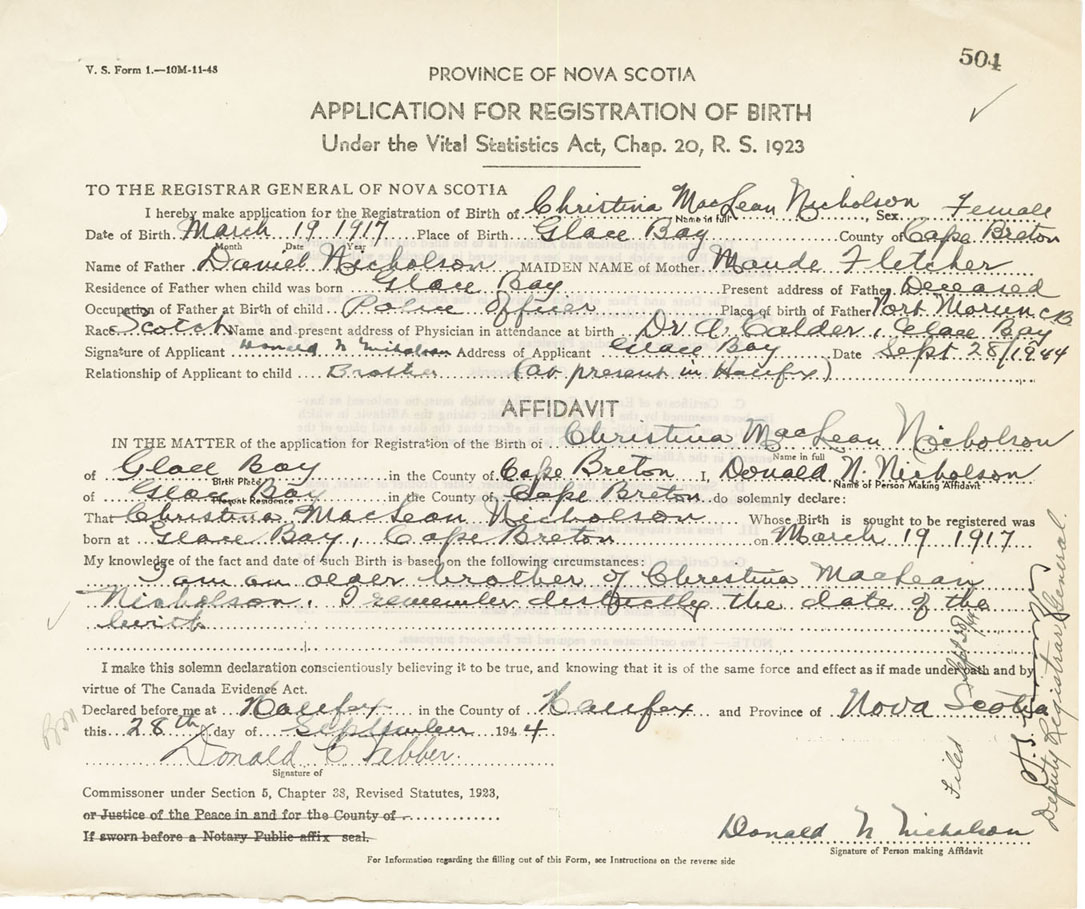 V. S. Form 1.—10M-11-43
504
PROVINCE OF NOVA SCOTIA
APPLICATION FOR REGISTRATION OF BIRTH
Under the Vital Statistics Act, Chap. 20, R. S. 1923
TO THE REGISTRAR GENERAL OF NOVA SCOTIA
I hereby make application for the Registration of Birth of Christina MacLean Nicholson, Sex Female
Name in full
Date of Birth March 19 1917 Place of Birth Glace Bay County of Cape Breton
Month Date Year
Name of Father Daniel Nicholson MAIDEN NAME of Mother Maude Fletcher
Residence of Father when child was born Glace Bay Present address of Father Deceased
Occupation of Father at Birth of child Police Officer Place of birth of Father Port Morien CB
Race Scotch Name and present address of Physician in attendance at birth Dr. A. Calder, Glace Bay
Signature of Applicant Donald N Nicholson Address of Applicant Glace Bay Date Sept 28/1944
Relationship of Applicant to child Brother (at present in Halifax)
AFFIDAVIT
IN THE MATTER of the application for Registration of the Birth of Christina MacLean Nicholson
Name in full
of Glace Bay in the County of Cape Breton I, Donald N. Nicholson
Birth Place Name of Person Making Affidavit
of Glace Bay in the County of Cape Breton do solemnly declare:
Present Residence
That Christina MacLean Nicholson Whose Birth is sought to be registered was
born at Glace Bay, Cape Breton on March 19 1917
My knowledge of the fact and date of such Birth is based on the following circumstances:
I am an older brother of Christina MacLean
Nicholson. I remember distinctly the date of the
birth
I make this solemn declaration conscientiously believing it to be true, and knowing that it is of the same force and effect as if made under oath and by
virtue of The Canada Evidence Act.
Declared before me at Halifax in the County of Halifax and Province of Nova Scotia
this 28th day of September 1944
Donald C
Signature of
Commissoner under Section 5, Chapter 38, Revised Statutes, 1923,
or Justice of the Peace in and for the County of
If sworn before a Notary Public affix seal.
Donald N Nicholson
Signature of Person making Affidavit
For Information regarding the filling out of this Form, see Instructions on the reverse side
Filed Sept
Deputy Registrar General.